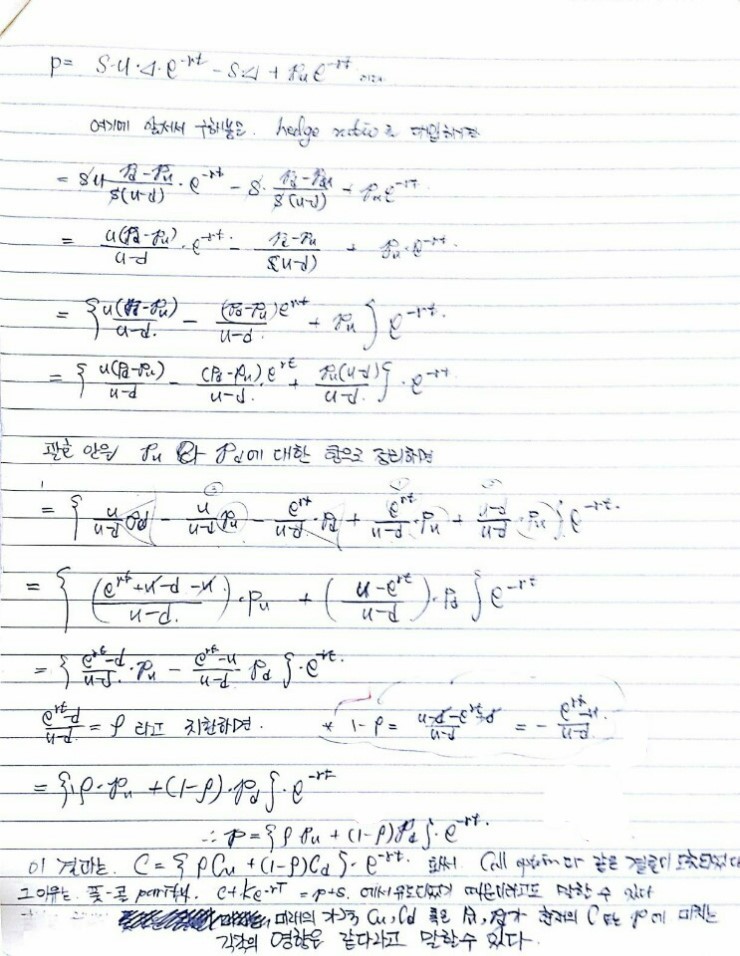 P = S·u·Δ·e^-rt - S·Δ + Pu e^-rt 이다.
여기에 앞에서 구해놓은 hedge ratio를 대입하면
= Su (Pd-Pu)/(S(u-d)) · e^-rt - S· (Pd-Pu)/(S(u-d)) + Pu e^-rt.
= u(Pd-Pu)/(u-d) · e^-rt - (Pd-Pu)/((u-d)) + Pu·e^-rt.
= { u(Pd-Pu)/(u-d) - (Pd-Pu)e^rt/(u-d) + Pu } e^-rt.
= { u(Pd-Pu)/(u-d) - (Pd-Pu)·e^rt/(u-d) + Pu(u-d)/(u-d) } · e^-rt
괄호 안을 Pu 와 Pd에 대한 항으로 정리하면
= { u/(u-d) Pd - u/(u-d) Pu - e^rt/(u-d) · Pd + e^rt/(u-d) · Pu + (u-d)/(u-d) · Pu } e^-rt.
= { ((e^rt+u-d-u)/(u-d))·Pu + ((u-e^rt)/(u-d))·Pd } e^-rt
= { (e^rt-d)/(u-d) · Pu - (e^rt-u)/(u-d) Pd } · e^-rt.
(e^rt-d)/(u-d) = ρ 라고 치환하면. * 1-ρ = (u-d-e^rt+d)/(u-d) = - (e^rt-u)/(u-d).
= { ρ·Pu + (1-ρ)·Pd } · e^-rt
∴ P = { ρ Pu + (1-ρ)Pd } · e^-rt.
이 결과는. C = { ρ Cu + (1-ρ) Cd } · e^-rt. 로서 Call option과 같은 결론이 도출되었다
그 이유는 풋-콜 에서. c+Ke^-rT = p+s. 에서 유도되었기 때문이라고도 말할 수 있다
미래의 가격 Cu, Cd 혹은 Pu, Pd가 현재의 C 또는 P에 미치는
각각의 영향은 같다라고 말할수 있다.